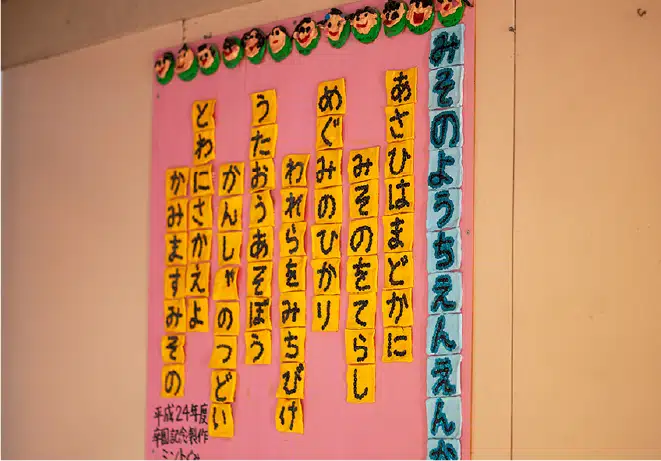 みそのようちえんえんか
あさひはまどかに
みそのをてらし
めぐみのひかり
われらをみちびけ
うたおうあそぼう
がんしゃのつどい
とわにさかえよ
かみますみその
平成24年度
卒園記念製作
ミントぐみ